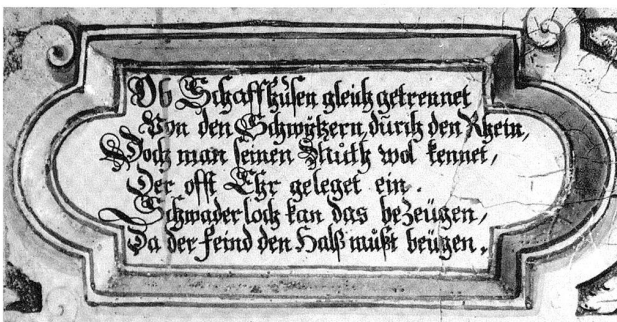 Ob Schaffhůsen gleich getrennet
Von den Schwÿtzern durch den Rhein,
Doch man seinen Muth wol kennet,
Der offt Ehr geleget ein.
Schwaderloch kan das bezeügen,
Da der Feind den Halß můßt beügen.